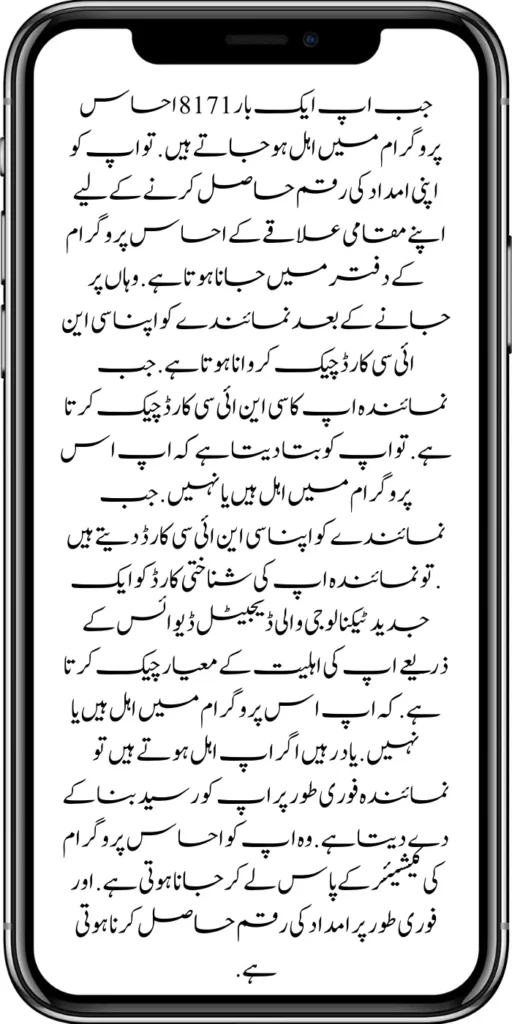 جب اپ ایک بار 8171 احساس
پروگرام میں اہل ہو جاتے ہیں. تو اپ کو
اپنی امداد کی رقم حاصل کرنے کے لیے
اپنے مقامی علاقے کے احساس پروگرام
کے دفتر میں جانا ہوتا ہے. وہاں پر
جانے کے بعد نمائندے کو اپنا سی این
ائی سی کارڈ چیک کروانا ہوتا ہے. جب
نمائندہ اپ کا سی این ائی سی کارڈ چیک کرتا
ہے. تو اپ کو بتا دیتا ہے کہ اپ اس
پروگرام میں اہل ہیں یا نہیں. جب
نمائندے کو اپنا سی این ائی سی کارڈ دیتے ہیں
. تو نمائندہ اپ کی شناختی کارڈ کو ایک
جدید ٹیکنالوجی والی ڈیجیٹل ڈیوائس کے
ذریعے اپ کی اہلیت کے معیار چیک کرتا
ہے. کہ اپ اس پروگرام میں اہل ہیں یا
نہیں. یاد رہیں اگر اپ اہل ہوتے ہیں تو
نمائندہ فوری طور پر اپ کو رسید بنا کے
دے دیتا ہے. وہ اپ کو احساس پروگرام
کی کیشیئر کے پاس لے کر جانا ہوتی ہے. اور
فوری طور پر امداد کی رقم حاصل کرنا ہوتی
ہے.